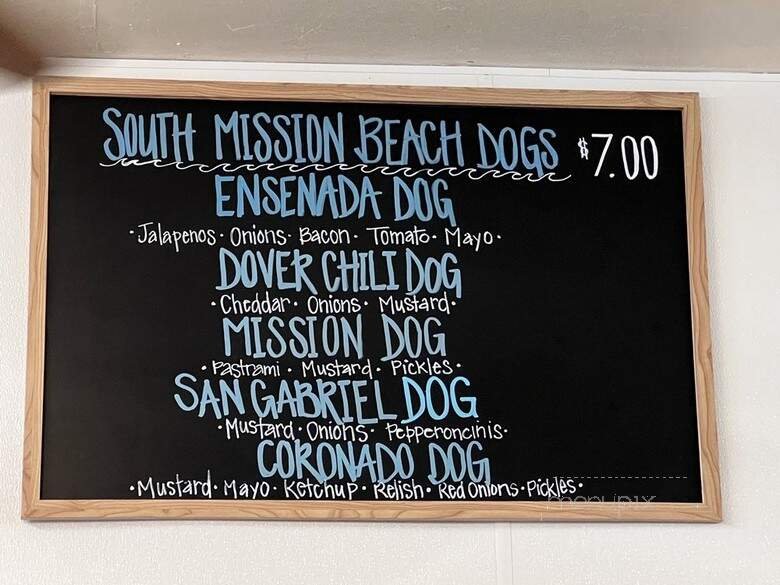 SOUTH MISSION BEACH DOGS $7.00
ENSENADA DOG
·Jalapenos· Onions· Bacon· Tomato· Mayo·
DOVER CHILI DOG
·Cheddar· Onions· Mustard·
MISSION DOG
·Pastrami· Mustard· Pickles·
SAN GABRIEL DOG
·Mustard·Onions· Pepperoncinis·
CORONADO DOG
·Mustard· Mayo· Ketchup· Relish· Red Onions·Pickles·
menupix